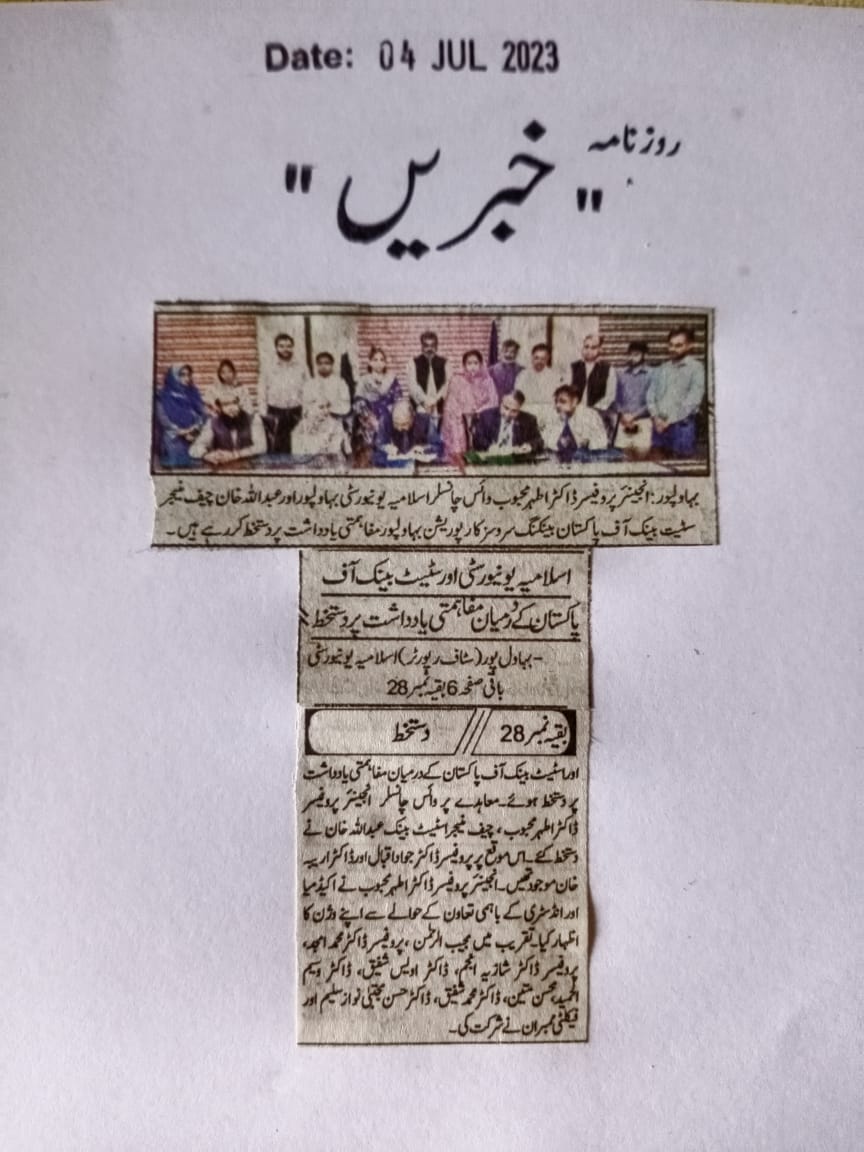 Date: 04 JUL 2023
روزنامہ
"خبریں"
بہاولپور: انجینئر پروفیسر ڈاکٹر اطہر محبوب وائس چانسلر اسلامیہ یونیورسٹی بہاولپور اور عبداللہ خان چیف منیجر
سٹیٹ بینک آف پاکستان بینکنگ سروسز کارپوریشن بہاولپور مفاہمتی یادداشت پر دستخط کر رہے ہیں۔
اسلامیہ یونیورسٹی اور سٹیٹ بینک آف
پاکستان کے درمیان مفاہمتی یادداشت پر دستخط
بہاول پور (سٹاف رپورٹر) اسلامیہ یونیورسٹی
باقی صفحہ 6 بقیہ نمبر 28
بقیہ نمبر 28 دستخط
اور اسٹیٹ بینک آف پاکستان کے درمیان مفاہمتی یادداشت
پر دستخط ہوئے۔ معاہدے پر وائس چانسلر انجینئر پروفیسر
ڈاکٹر اطہر محبوب، چیف منیجر اسٹیٹ بینک عبداللہ خان نے
دستخط کئے۔ اس موقع پر پروفیسر ڈاکٹر جواد اقبال اور ڈاکٹر اریبہ
خان موجود تھیں۔ انجینئر پروفیسر ڈاکٹر اطہر محبوب نے اکیڈمیا
اور انڈسٹری کے باہمی تعاون کے حوالے سے اپنے وژن کا
اظہار کیا۔ تقریب میں مجیب الرحمٰن، پروفیسر ڈاکٹر محمد امجد،
پروفیسر ڈاکٹر شازیہ انجم، ڈاکٹر اویس شفیق، ڈاکٹر وسیم
الحمید، محسن متین، ڈاکٹر محمد شفیق، ڈاکٹر حسن مجتبیٰ نواز سلیم اور
فیکلٹی ممبران نے شرکت کی۔